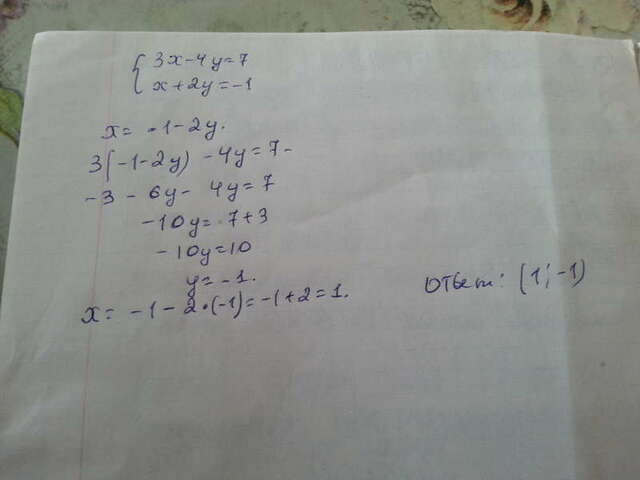 { 3x-4y=7
x+2y=-1
x= -1-2y.
3(-1-2y) -4y=7-
-3 - 6y- 4y=7
-10y= 7+3
-10y=10
y=-1.
x= -1-2·(-1)=-1+2=1.
Ответ: (1; -1)